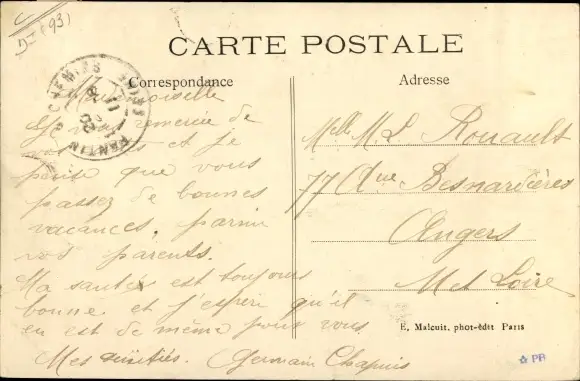 DI (93)
CARTE POSTALE
Correspondance
Adresse
Mademoiselle
Je vous remercie de
vos et je
pense que vous
passez de bonnes
vacances, parmi
vos parents.
Ma santé est toujours
bonne et j'espère qu'il
en est de même pour vous
Mes amitiés. Germain Chapuis
Melle M L Rouault
77 Rue Besnardières
Angers
M et Loire
E. Malcuit, phot-édit Paris
PB
PANTIN